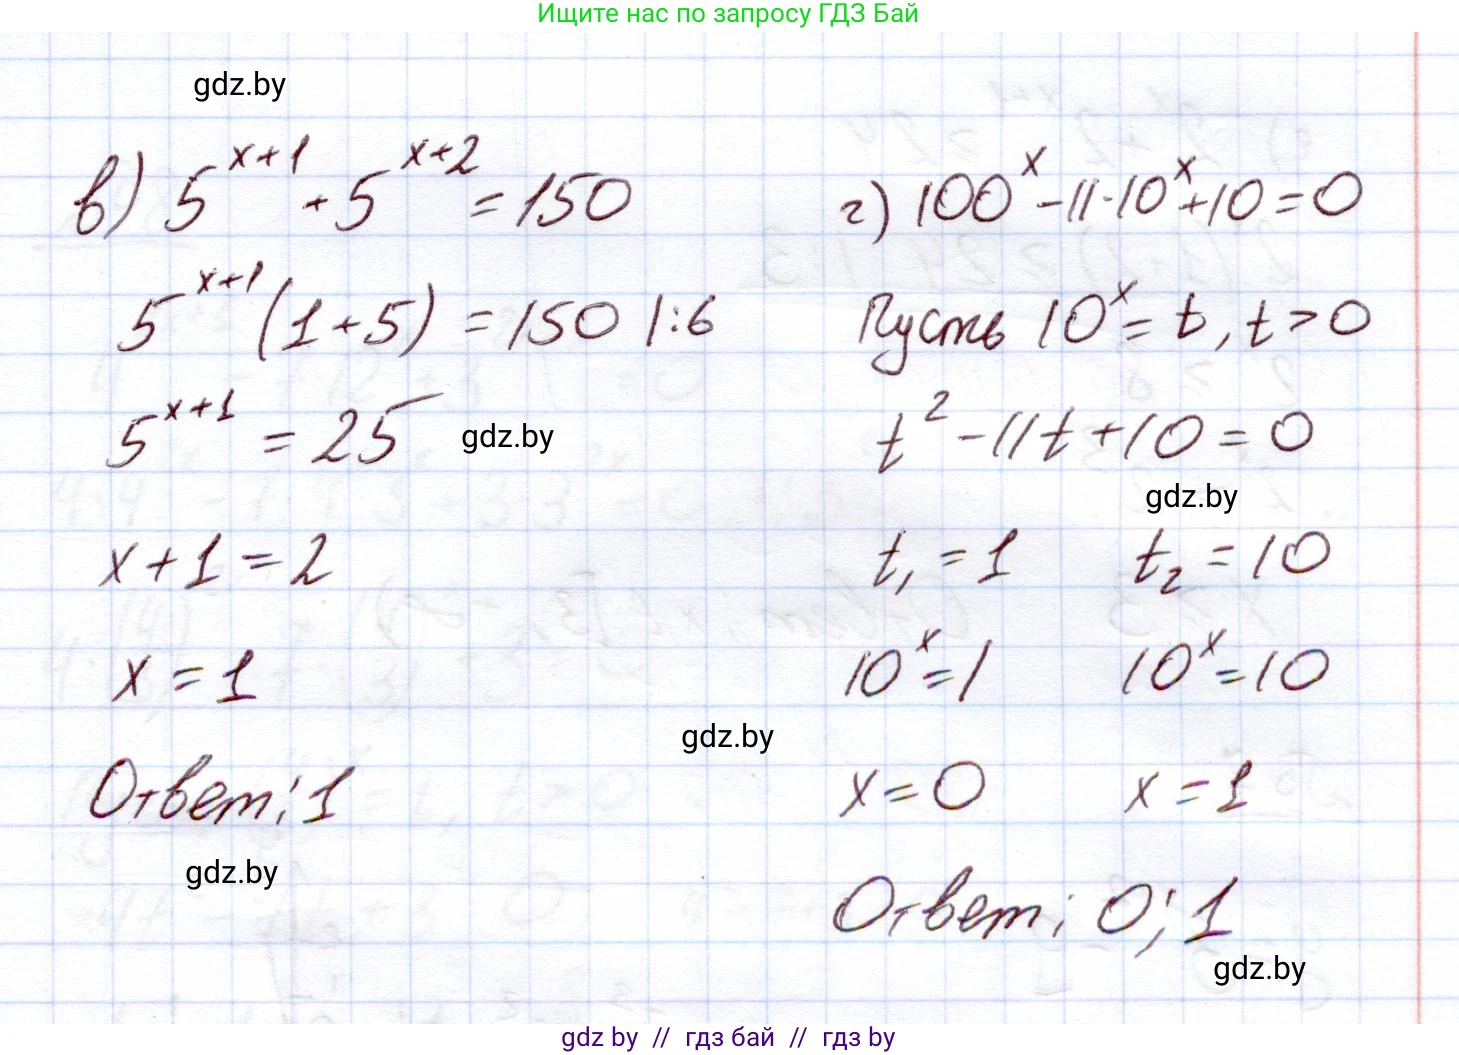 Ищите нас по запросу ГДЗ Бай
gdz.by
в) 5^{x+1} + 5^{x+2} = 150
5^{x+1} (1+5) = 150 | :6
5^{x+1} = 25
gdz.by
x+1 = 2
x = 1
gdz.by
Ответ: 1
gdz.by
г) 100^x - 11·10^x + 10 = 0
Пусть 10^x = t, t > 0
t^2 - 11t + 10 = 0
gdz.by
t_1 = 1 t_2 = 10
10^x = 1 10^x = 10
x = 0 x = 1
Ответ: 0; 1
gdz.by
gdz by // гдз бай // гдз by